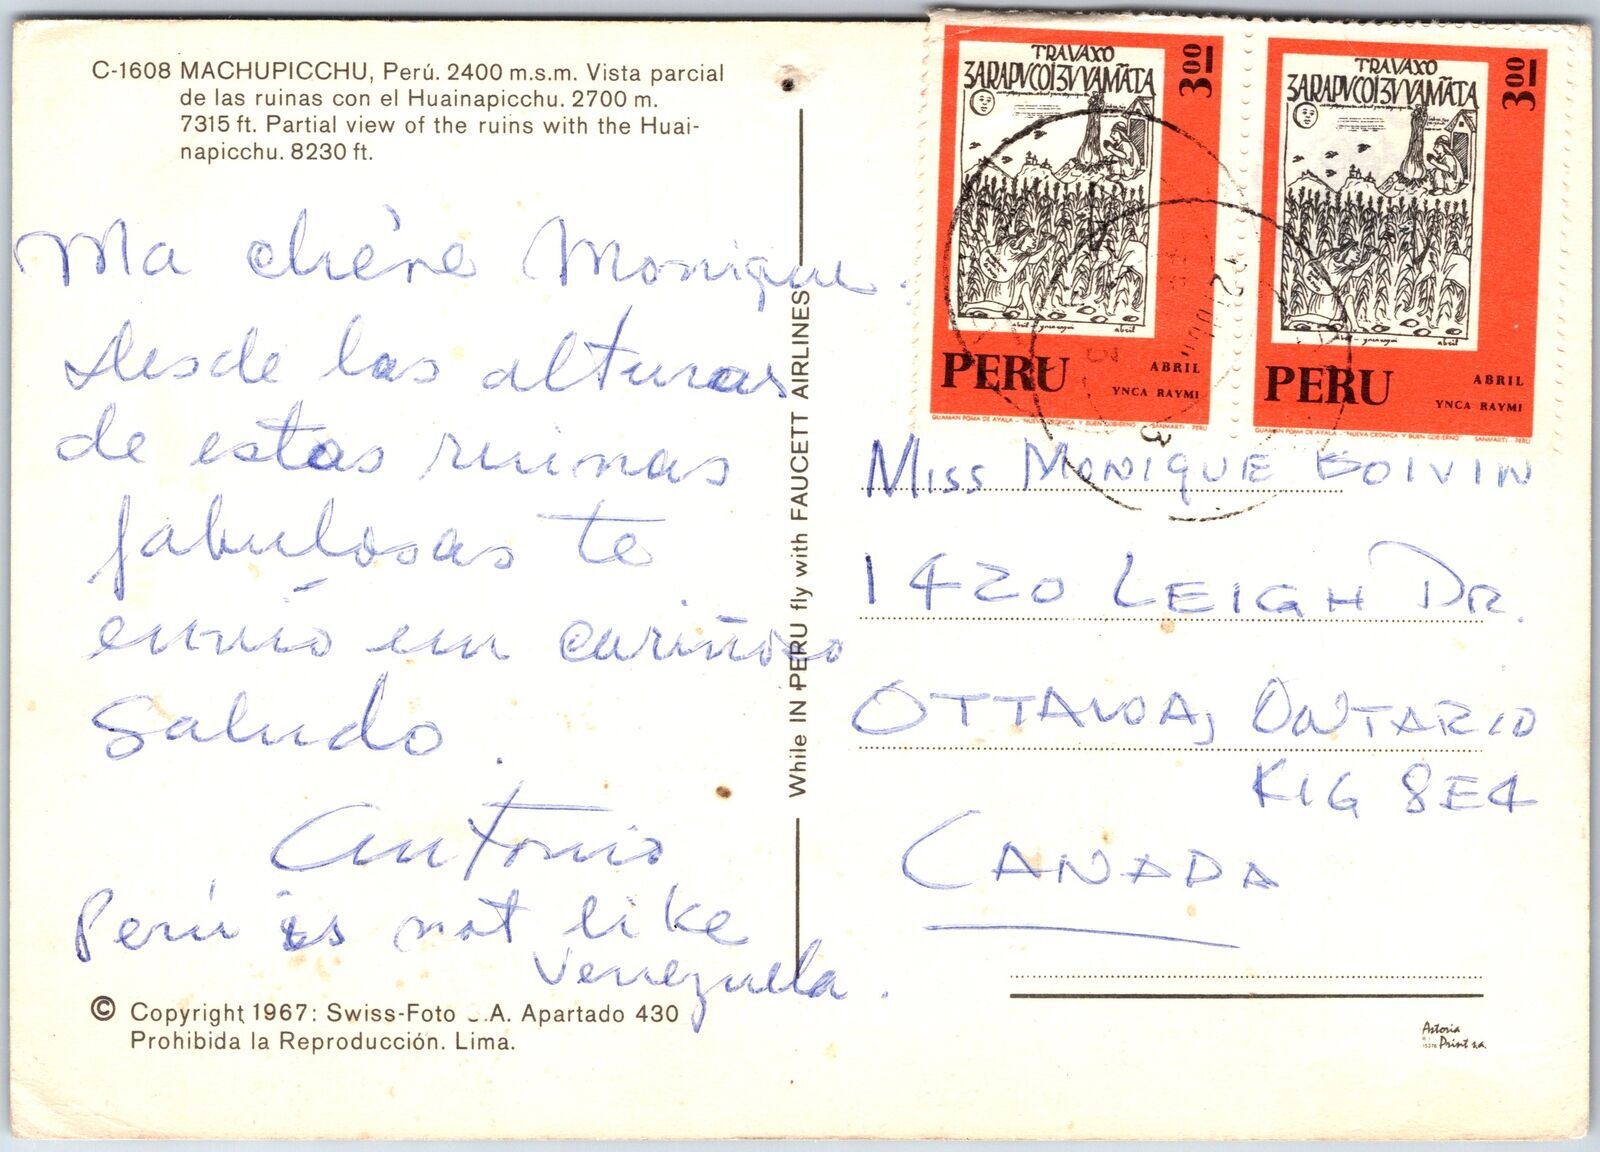 C-1608 MACHUPICCHU, Perú. 2400 m.s.m. Vista parcial
de las ruinas con el Huainapicchu. 2700 m.
7315 ft. Partial view of the ruins with the Huai-
napicchu. 8230 ft.
Ma chère Monique.
Desde las alturas
de estas ruinas
fabulosas te
envío un cariñoso
saludo.
Antonio
Perú is not like
Venezuela.
© Copyright 1967: Swiss-Foto S.A. Apartado 430
Prohibida la Reproducción. Lima.
While IN PERU fly with FAUCETT AIRLINES
TRAVAXO
ZARAPVCOIZVVAMÃTA
3 00
abril
PERU
ABRIL
YNCA RAYMI
GUAMAN POMA DE AYALA - "NUEVA CRONICA Y BUEN GOBIERNO" SANMARTI - PERU
TRAVAXO
ZARAPVCOIZVVAMÃTA
3 00
abril
PERU
ABRIL
YNCA RAYMI
GUAMAN POMA DE AYALA - "NUEVA CRONICA Y BUEN GOBIERNO" SANMARTI - PERU
MISS MONIQUE BOIVIN
1420 LEIGH DR.
OTTAWA, ONTARIO
K1G 8E4
CANADA
Astoria
Print s.a.